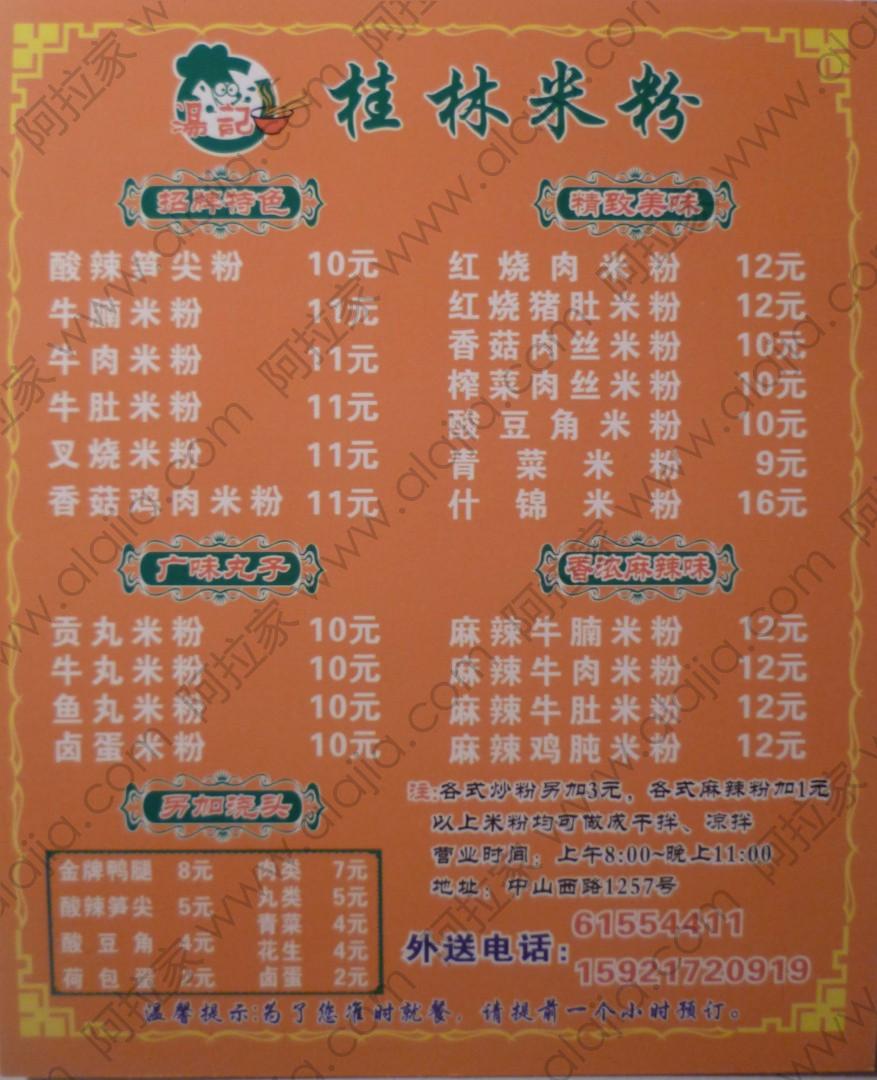 湯記
桂林米粉
招牌特色
酸辣笋尖粉 10元
牛腩米粉 11元
牛肉米粉 11元
牛肚米粉 11元
叉烧米粉 11元
香菇鸡肉米粉 11元
精致美味
红烧肉米粉 12元
红烧猪肚米粉 12元
香菇肉丝米粉 10元
榨菜肉丝米粉 10元
酸豆角米粉 10元
青菜米粉 9元
什锦米粉 16元
广味丸子
贡丸米粉 10元
牛丸米粉 10元
鱼丸米粉 10元
卤蛋米粉 10元
香浓麻辣味
麻辣牛腩米粉 12元
麻辣牛肉米粉 12元
麻辣牛肚米粉 12元
麻辣鸡肫米粉 12元
另加浇头
金牌鸭腿 8元 肉类 7元
酸辣笋尖 5元 丸类 5元
酸豆角 4元 青菜 4元
花生 4元
荷包蛋 2元 卤蛋 2元
注:各式炒粉另加3元，各式麻辣粉加1元
以上米粉均可做成干拌、凉拌
营业时间：上午8:00~晚上11:00
地址：中山西路1257号
外送电话：61554411
15921720919
温馨提示:为了您准时就餐，请提前一个小时预订。
阿拉家 www.alajia.com